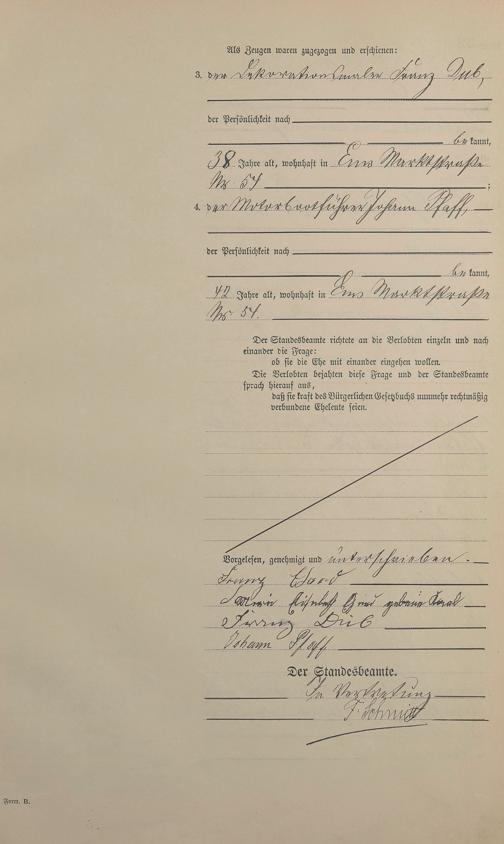 Als Zeugen waren zugezogen und erschienen:
3. der Dekorationsmaler Franz Dub,
der Persönlichkeit nach
be kannt,
38 Jahre alt, wohnhaft in Ems Marktstraße
Nr 57 ;
4. der Motorbootführer Johann Pfaff,
der Persönlichkeit nach
be kannt,
42 Jahre alt, wohnhaft in Ems Marktstraße
Nr 57.
Der Standesbeamte richtete an die Verlobten einzeln und nach
einander die Frage:
ob sie die Ehe mit einander eingehen wollen.
Die Verlobten bejahten diese Frage und der Standesbeamte
sprach hierauf aus,
daß sie kraft des Bürgerlichen Gesetzbuchs nunmehr rechtmäßig
verbundene Eheleute seien.
Vorgelesen, genehmigt und unterschrieben.
Franz
geborene
Franz Dub
Johann Pfaff
Der Standesbeamte.
In Vertretung
F. Schmitt
Form. B.